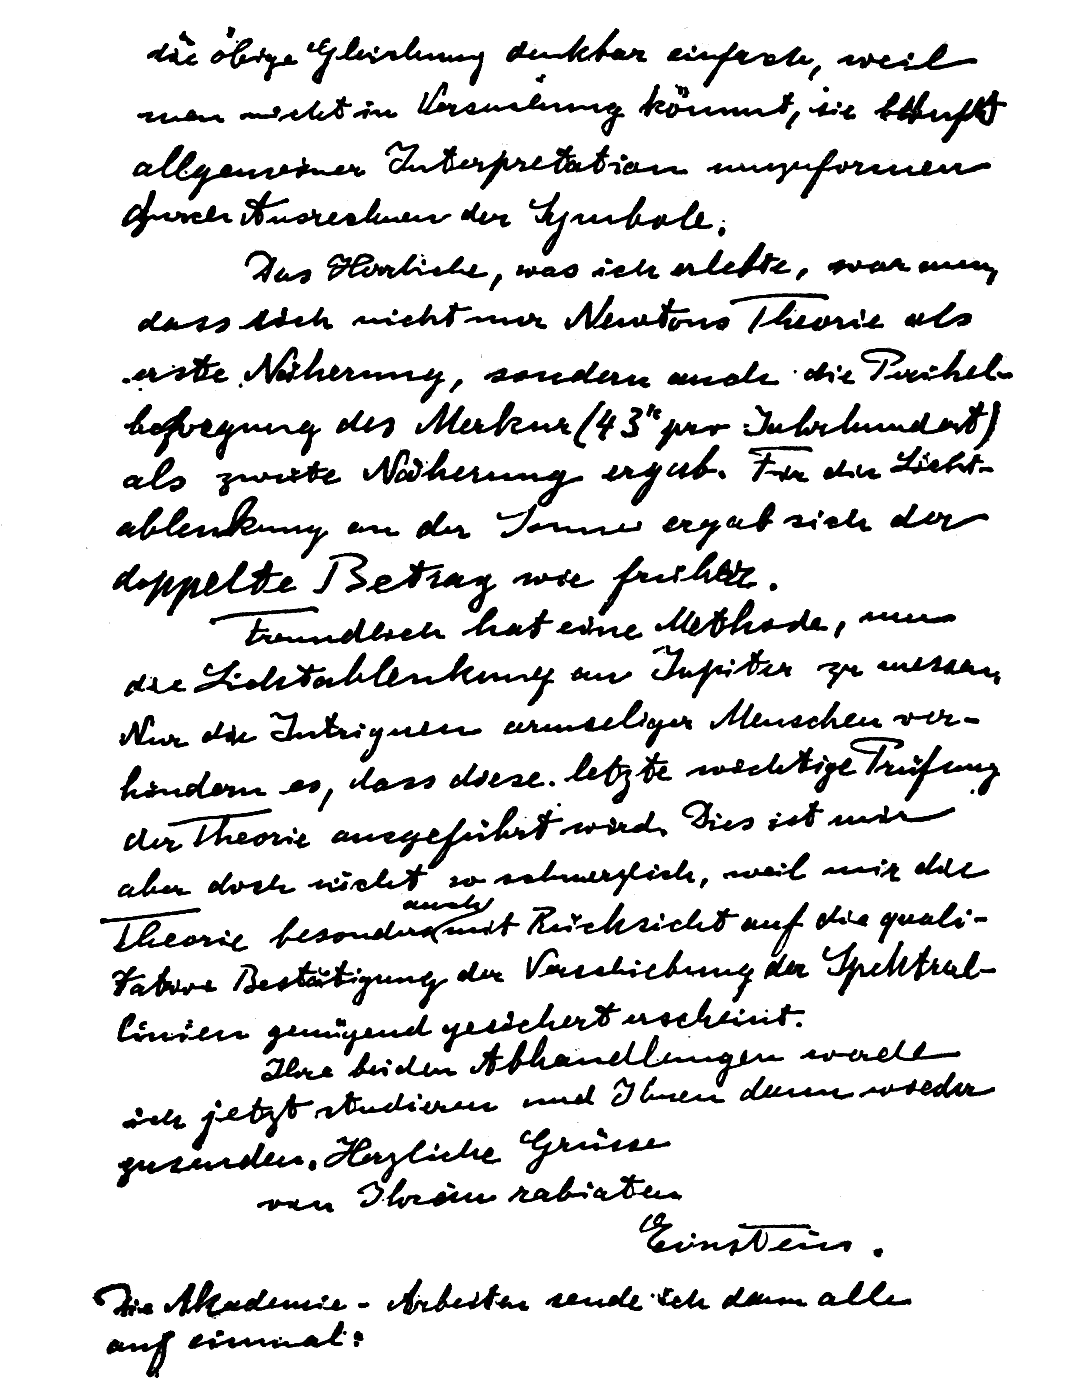 die obige Gleichung denkbar einfach, weil
man nicht in Versuchung kommt, sie behufs
allgemeiner Interpretation umzuformen
durch Ausrechnen der Symbole.
Das Herrliche, was ich erlebte, war nun,
dass sich nicht nur Newtons Theorie als
erste Näherung, sondern auch die Perihel-
bewegung des Merkur (43" pro Jahrhundert)
als zweite Näherung ergab. Für die Licht-
ablenkung an der Sonne ergab sich der
doppelte Betrag wie früher.
Freundlich hat eine Methode, um
die Lichtablenkung an Jupiter zu messen,
Nur die Intriguen armseliger Menschen ver-
hindern es, dass diese letzte wichtige Prüfung
der Theorie ausgeführt wird. Dies ist mir
aber doch nicht so schmerzlich, weil mir die
Theorie besonders auch mit Rücksicht auf die quali-
tative Bestätigung der Verschiebung der Spektral-
linien genügend gesichert erscheint.
Ihre beiden Abhandlungen werde
ich jetzt studieren und Ihnen dann wieder
zusenden. Herzliche Grüsse
von Ihrem rabiaten
Einstein.
Die Akademie-Arbeiten sende ich dann alle
auf einmal.